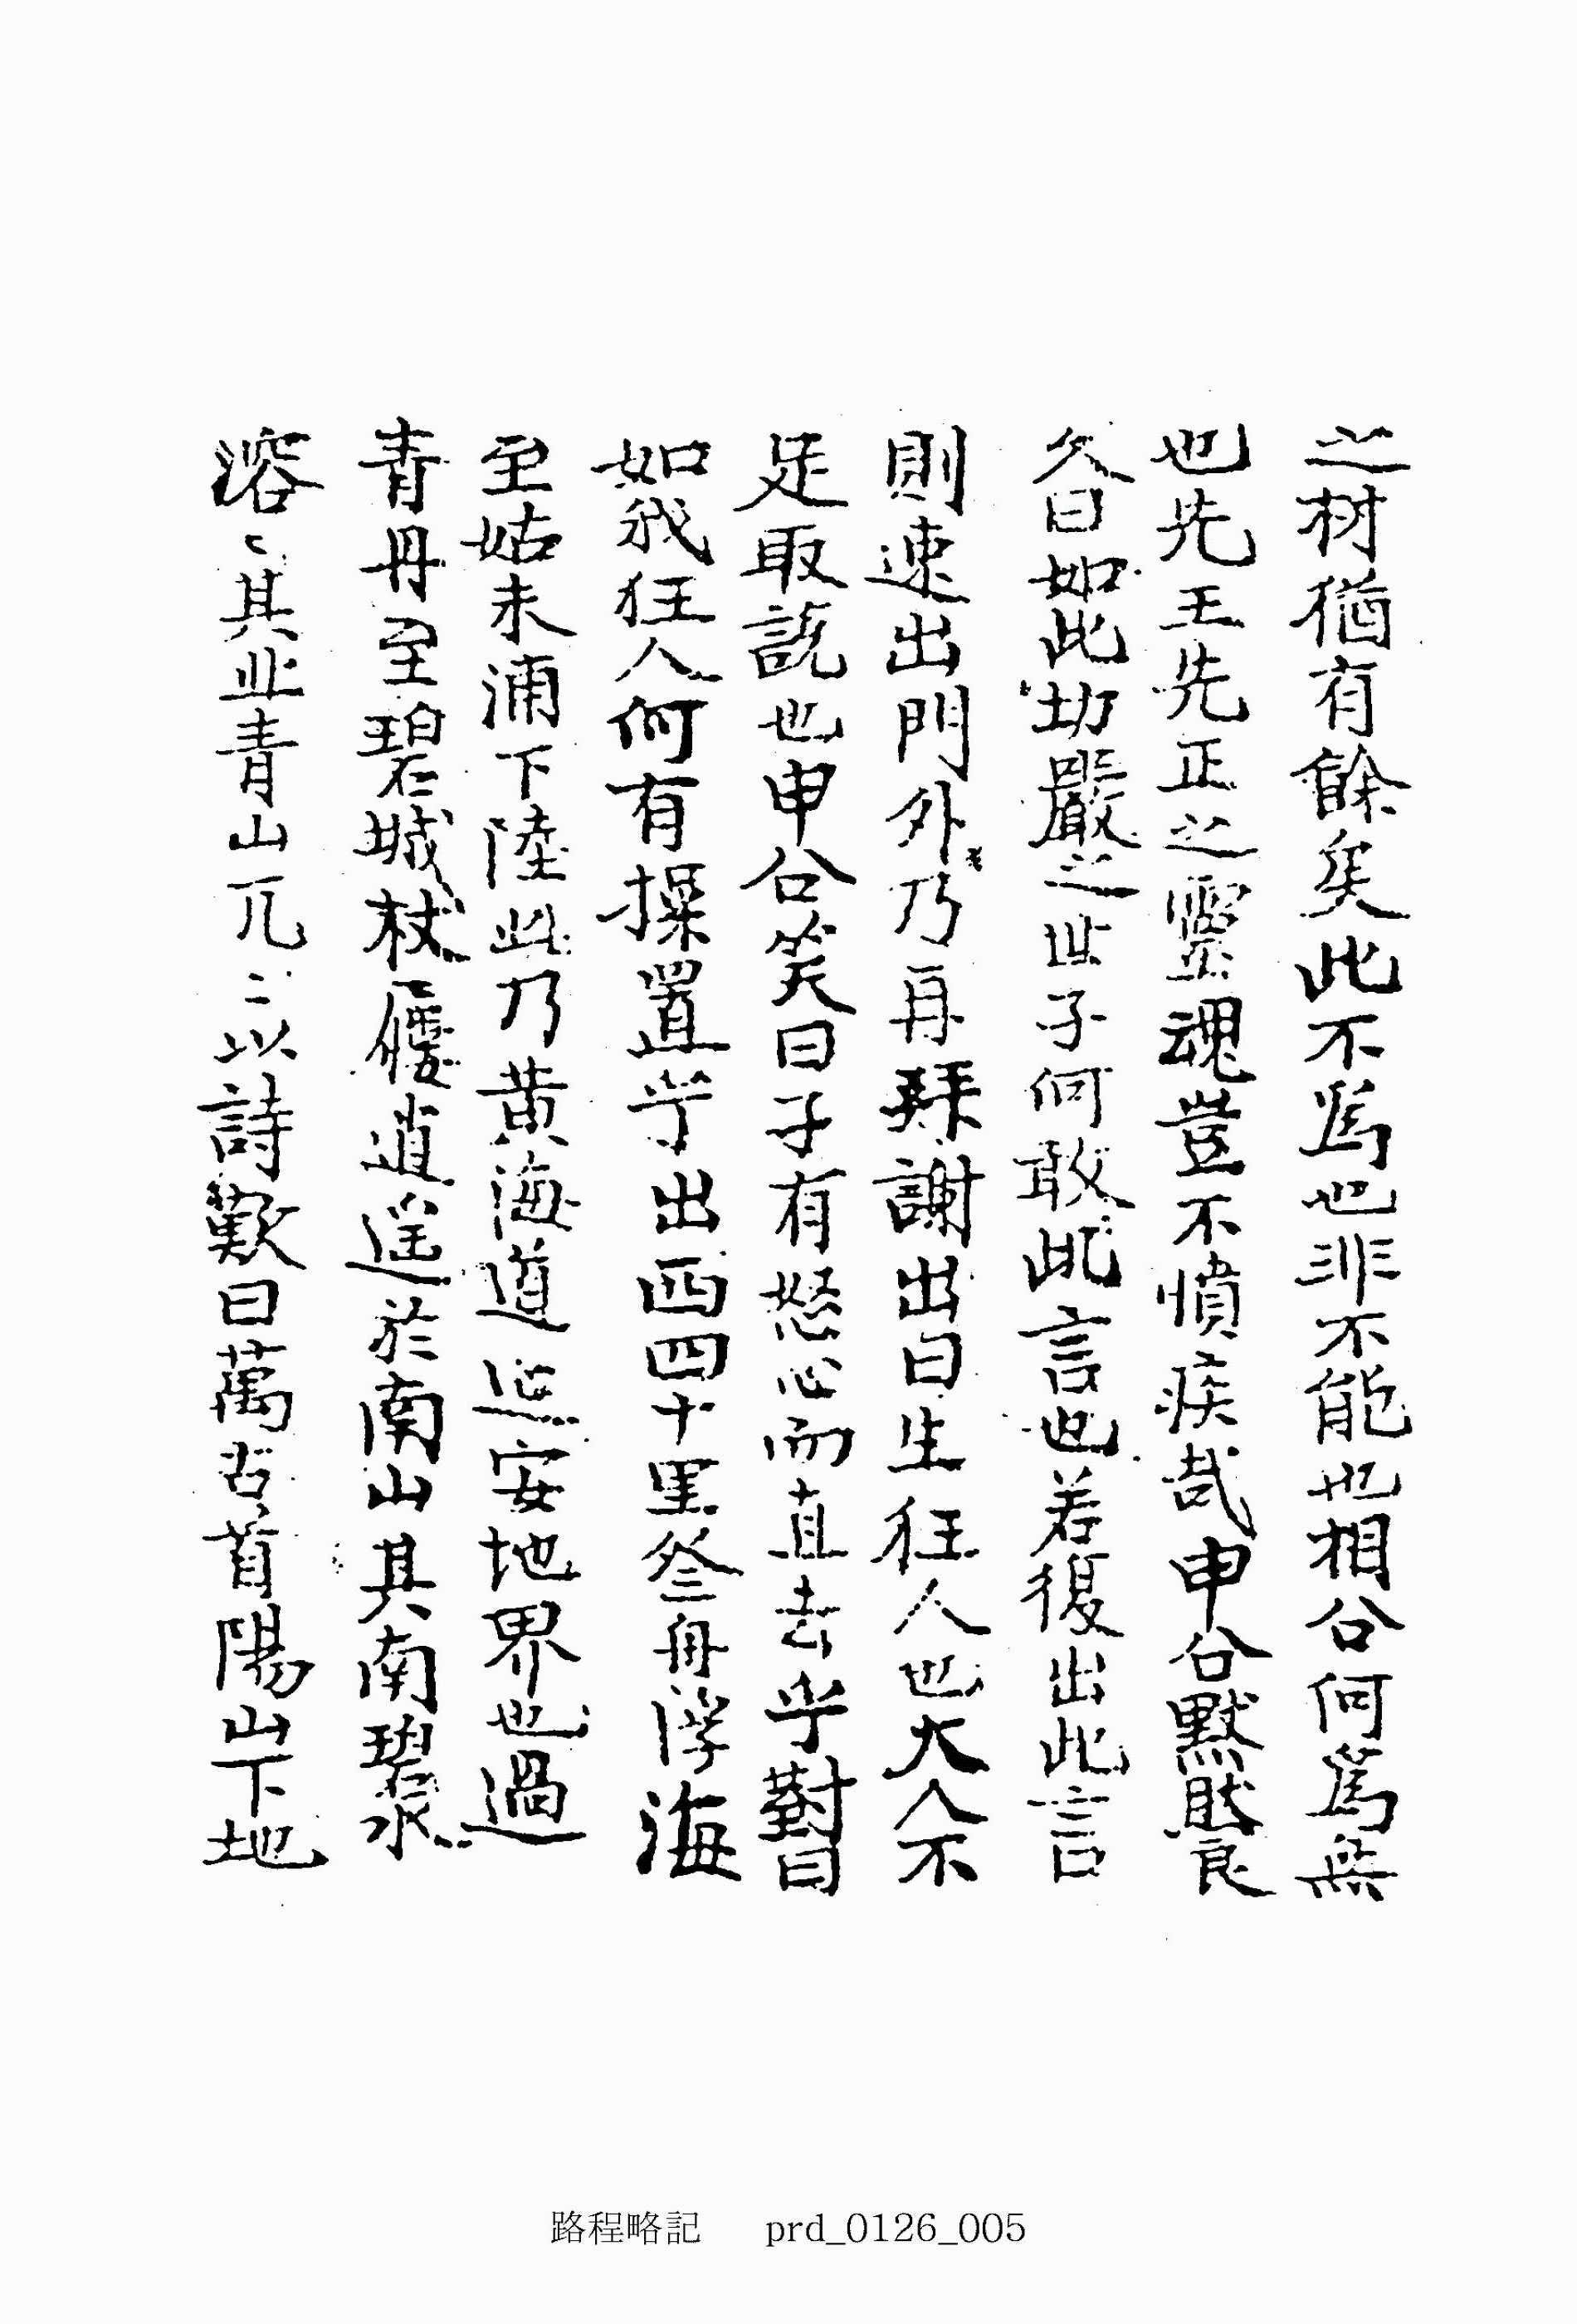 之材猶有餘矣此不爲也非不能也相公何爲無
也先王先正之靈魂豈不憤疾哉申公默默良
久曰如此切嚴之世子何敢此言也若復出此言
則速出門外乃再拜謝出曰生狂人也大人不
足取說也申公笑曰子有怒心而直去乎對曰
如我狂人何有操置乎出西四十里登舟浮海
至姑未浦下陸此乃黃海道延安地界也過
青丹至碧城杖屨逍遥於南山其南碧水
溶〻其北青山兀〻以詩歎曰萬古首陽山下地
路程略記 prd_0126_005